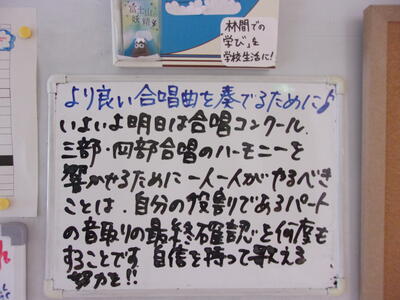 富士山の
妖精
林間での
"学び"を
学校生活に!
より良い合唱曲を奏でるために♪
いよいよ明日は合唱コンクール.
三部・四部合唱のハーモニーを
響かせるために一人一人がやるべき
ことは、自分の役割であるパート
の音取りの最終確認を何度も
することです。自信を持って歌える
努力を!!